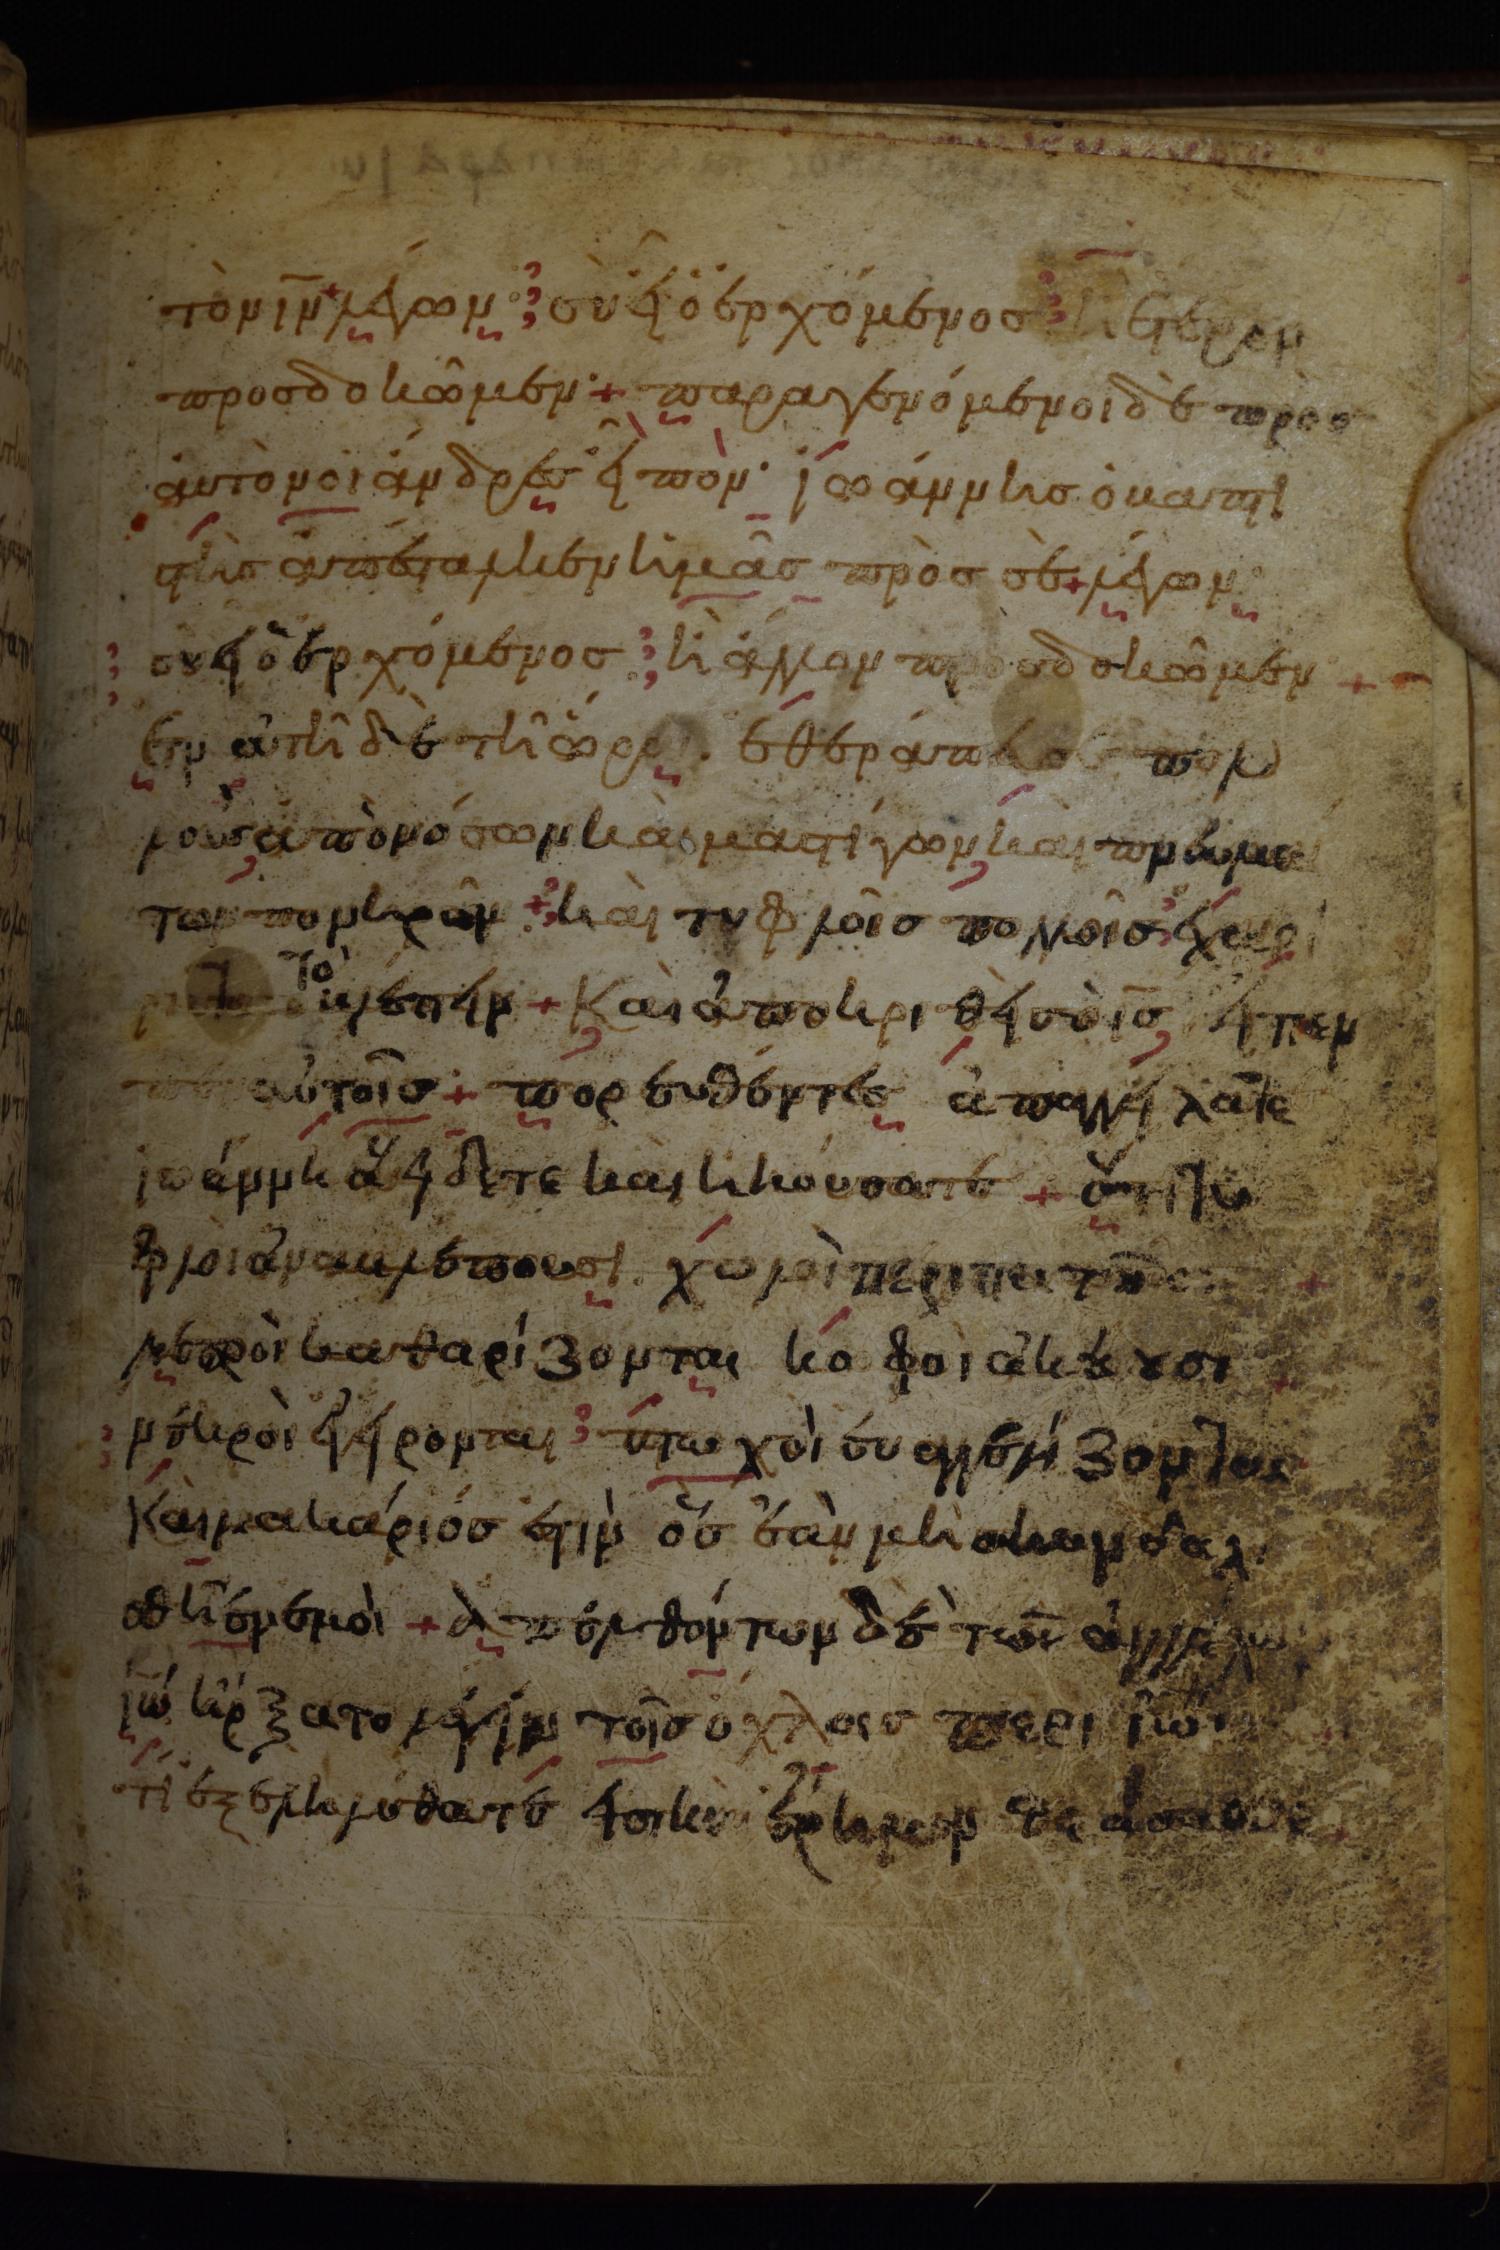 τὸν ιν λέγων· σὺ εἶ ὁ ἐρχόμενος ἢ ἕτερον
προσδοκῶμεν + παραγενόμενοι δὲ πρὸς
αὐτὸν οἱ ἄνδρες εἶπον· ἰωάννης ὁ βαπτι
στὴς ἀπέσταλκεν ἡμᾶς πρὸς σὲ + λέγων
συ εἶ ὁ ἐρχόμενος ἢ ἄλλον προσδοκῶμεν +
ἐν αὐτῆ δὲ τῆ ὥρα. ἐθεράπευσε πολ
λοὺς ἀπὸ νόσων καὶ μαστίγων καὶ πνευμά
των πονηρῶν + καὶ τυφλοῖς πολλοῖς ἐχαρί
σατο τὸ βλέπειν + Καὶ ἀποκριθεὶς ὁ ις εἶπεν
αὐτοῖς + πορευθέντες ἀπαγγείλατε
ἰωάννη ἃ εἴδετε καὶ ἠκούσατε + ὅτι τυ
φλοὶ ἀναβλέπουσι. χωλοὶ περιπατοῦσι +
λεπροὶ καθαρίζονται κωφοὶ ἀκούουσι
νεκροὶ ἐγείρονται πτωχοὶ εὐαγγελίζονται
Καὶ μακάριός ἐστιν ὃς ἐὰν μὴ σκανδαλ
σθῆ ἐν ἐμοὶ + ἀπελθόντων δὲ τῶν ἀγγέλων
ιω ἤρξατο λέγειν τοῖς ὄχλοις περι ιω
τί ἐξεληλύθατε εἰς τὴν ἔρημον θεάσασθαι